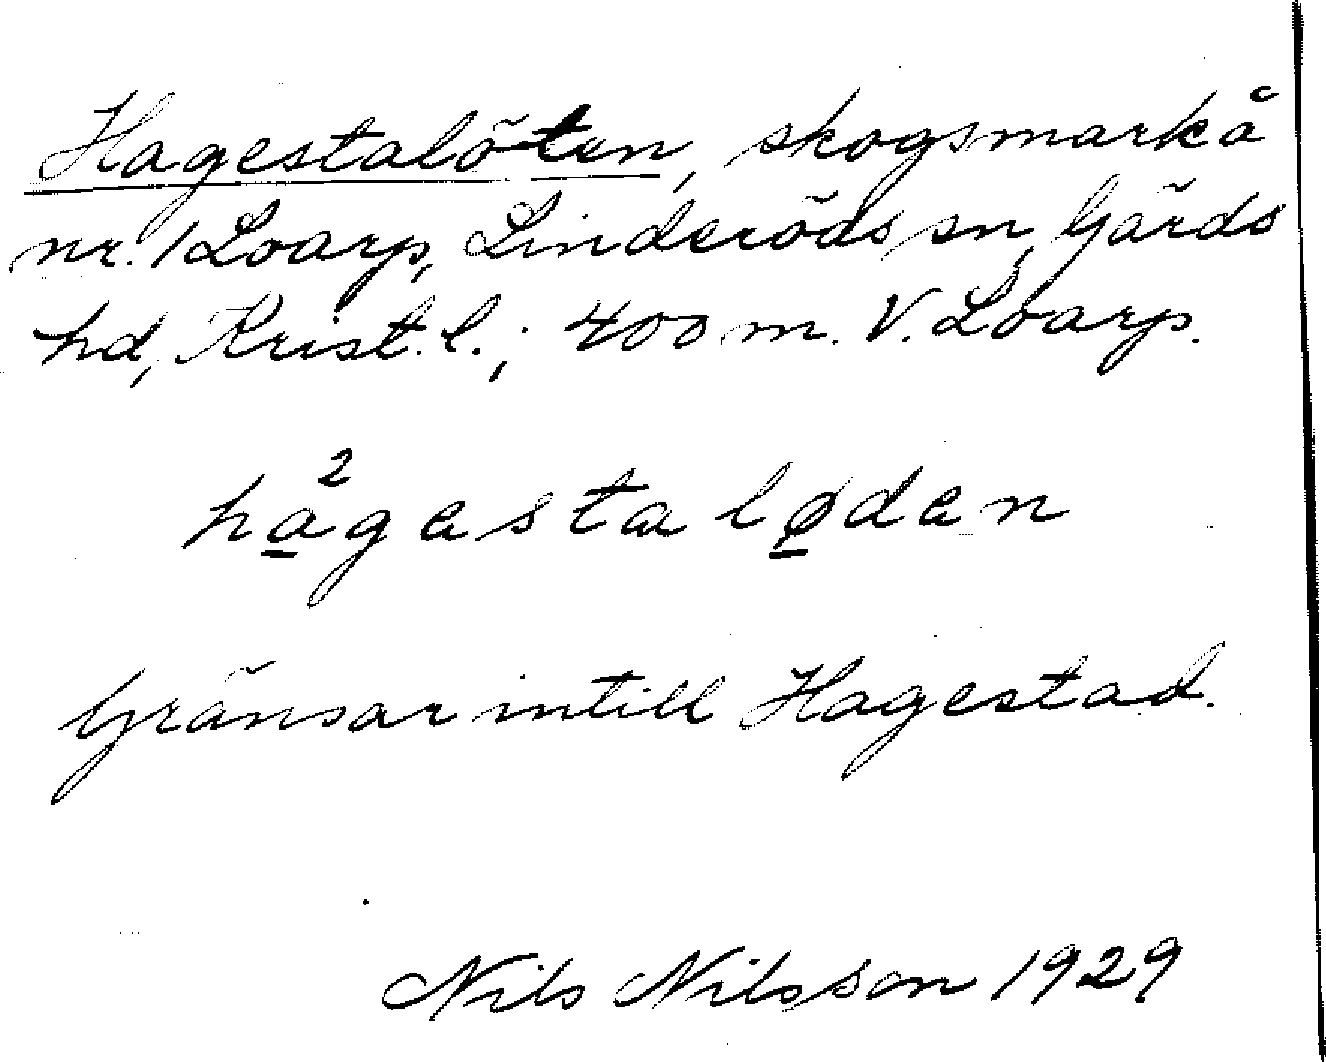 Hagestalöten, skogsmark å
nr. 1 Loarp, Linderöds sn, Gärds
hd, Krist. l.; 400 m. V. Loarp.
ha̠²gestalø̠den
Gränsar intill Hagestad.
Nils Nilsson 1929